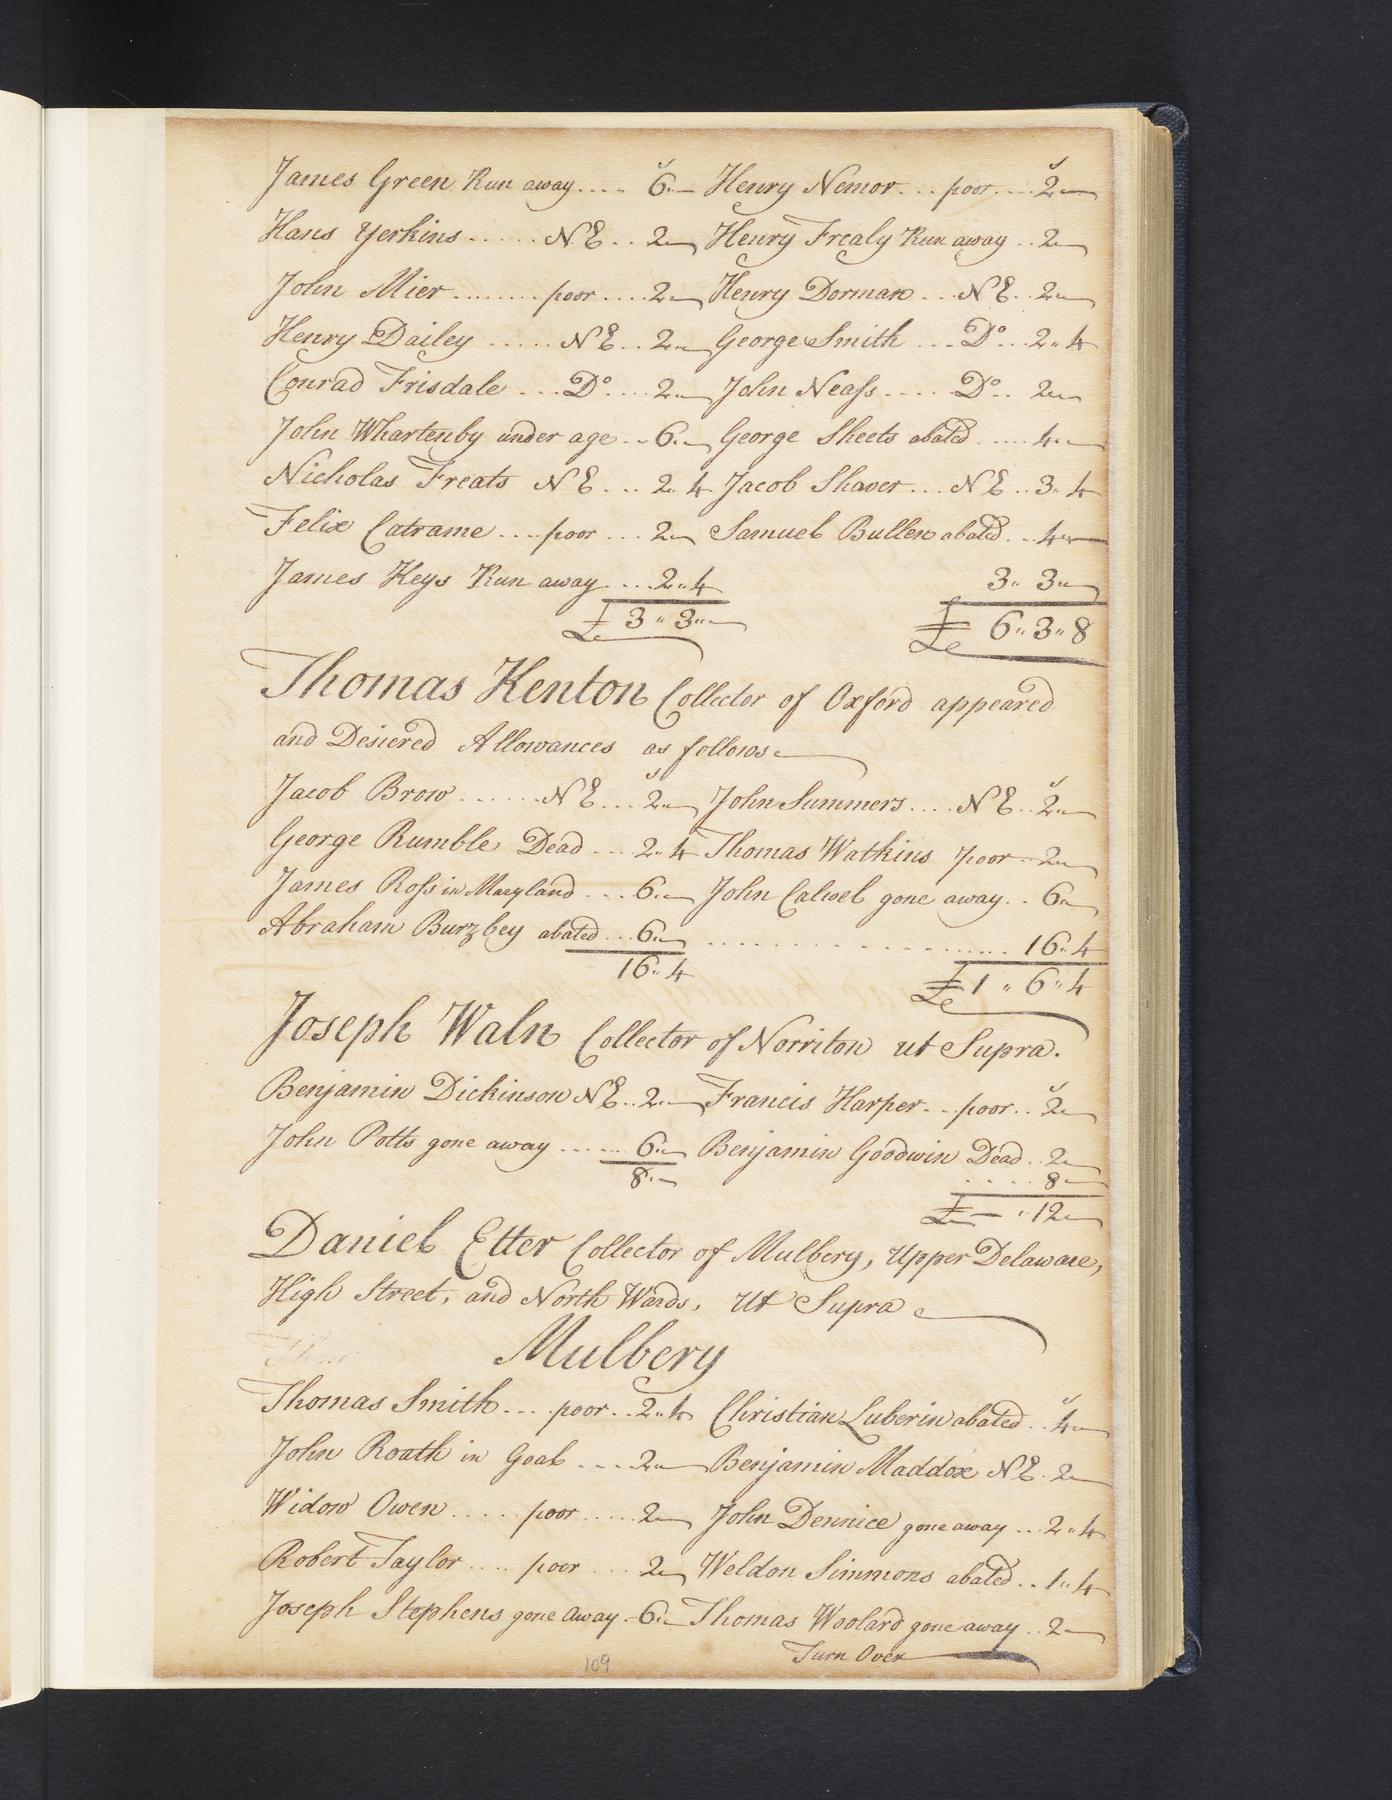 James Green Run away .... 6"— Henry Nemor ... poor .... 2"—
Hans Yerkins ...... N E .. 2"— Henry Frealy Run away .. 2"—
John Mier ........ poor .... 2"— Henry Dorman ... N E .. 2"—
Henry Dailey ..... N E .. 2"— George Smith ... Do ... 2"4
Conrad Frisdale ... Do .... 2"— John Neass .... Do .. 2"—
John Whartenby under age .. 6"— George Sheets abated ..... 4"—
Nicholas Freats N E ... 2"4 Jacob Shaver ... N E .. 3"4
Felix Catrame .... poor ... 2"— Samuel Bullen abated ... 4"—
James Keys Run away .... 2"4 3"3"—
£3"3"— £6"3"8
Thomas Kenton Collector of Oxford appeared
and Desiered Allowances as follows
Jacob Brow ...... N E ... 2"— John Summers .... N E .. 2"—
George Rumble Dead .... 2"4 Thomas Watkins poor .. 2"—
James Ross in Maryland ... 6"— John Calwel gone away .. 6"—
Abraham Burzbey abated ... 6"— .................. 16"4
16"4 £1"6"4
Joseph Waln Collector of Norriton ut Supra.
Benjamin Dickinson N E .. 2"— Francis Harper .. poor .. 2"—
John Potts gone away ...... 6"— Benjamin Goodwin Dead .. 2"—
8"— .... 8"—
£—"12"—
Daniel Etter Collector of Mulbery, Upper Delaware,
High Street, and North Wards, Ut Supra
Mulbery
Thomas Smith ... poor .. 2"4 Christian Luberin abated .. 4"—
John Roath in Goal .... 2"— Benjamin Maddox N E . 2"—
Widow Owen ..... poor ..... 2"— John Dennice gone away ... 2"4
Robert Taylor .... poor ... 2"— Weldon Simmons abated .. 1"4
Joseph Stephens gone Away . 6"— Thomas Woolard gone away .. 2"—
Turn Over
109